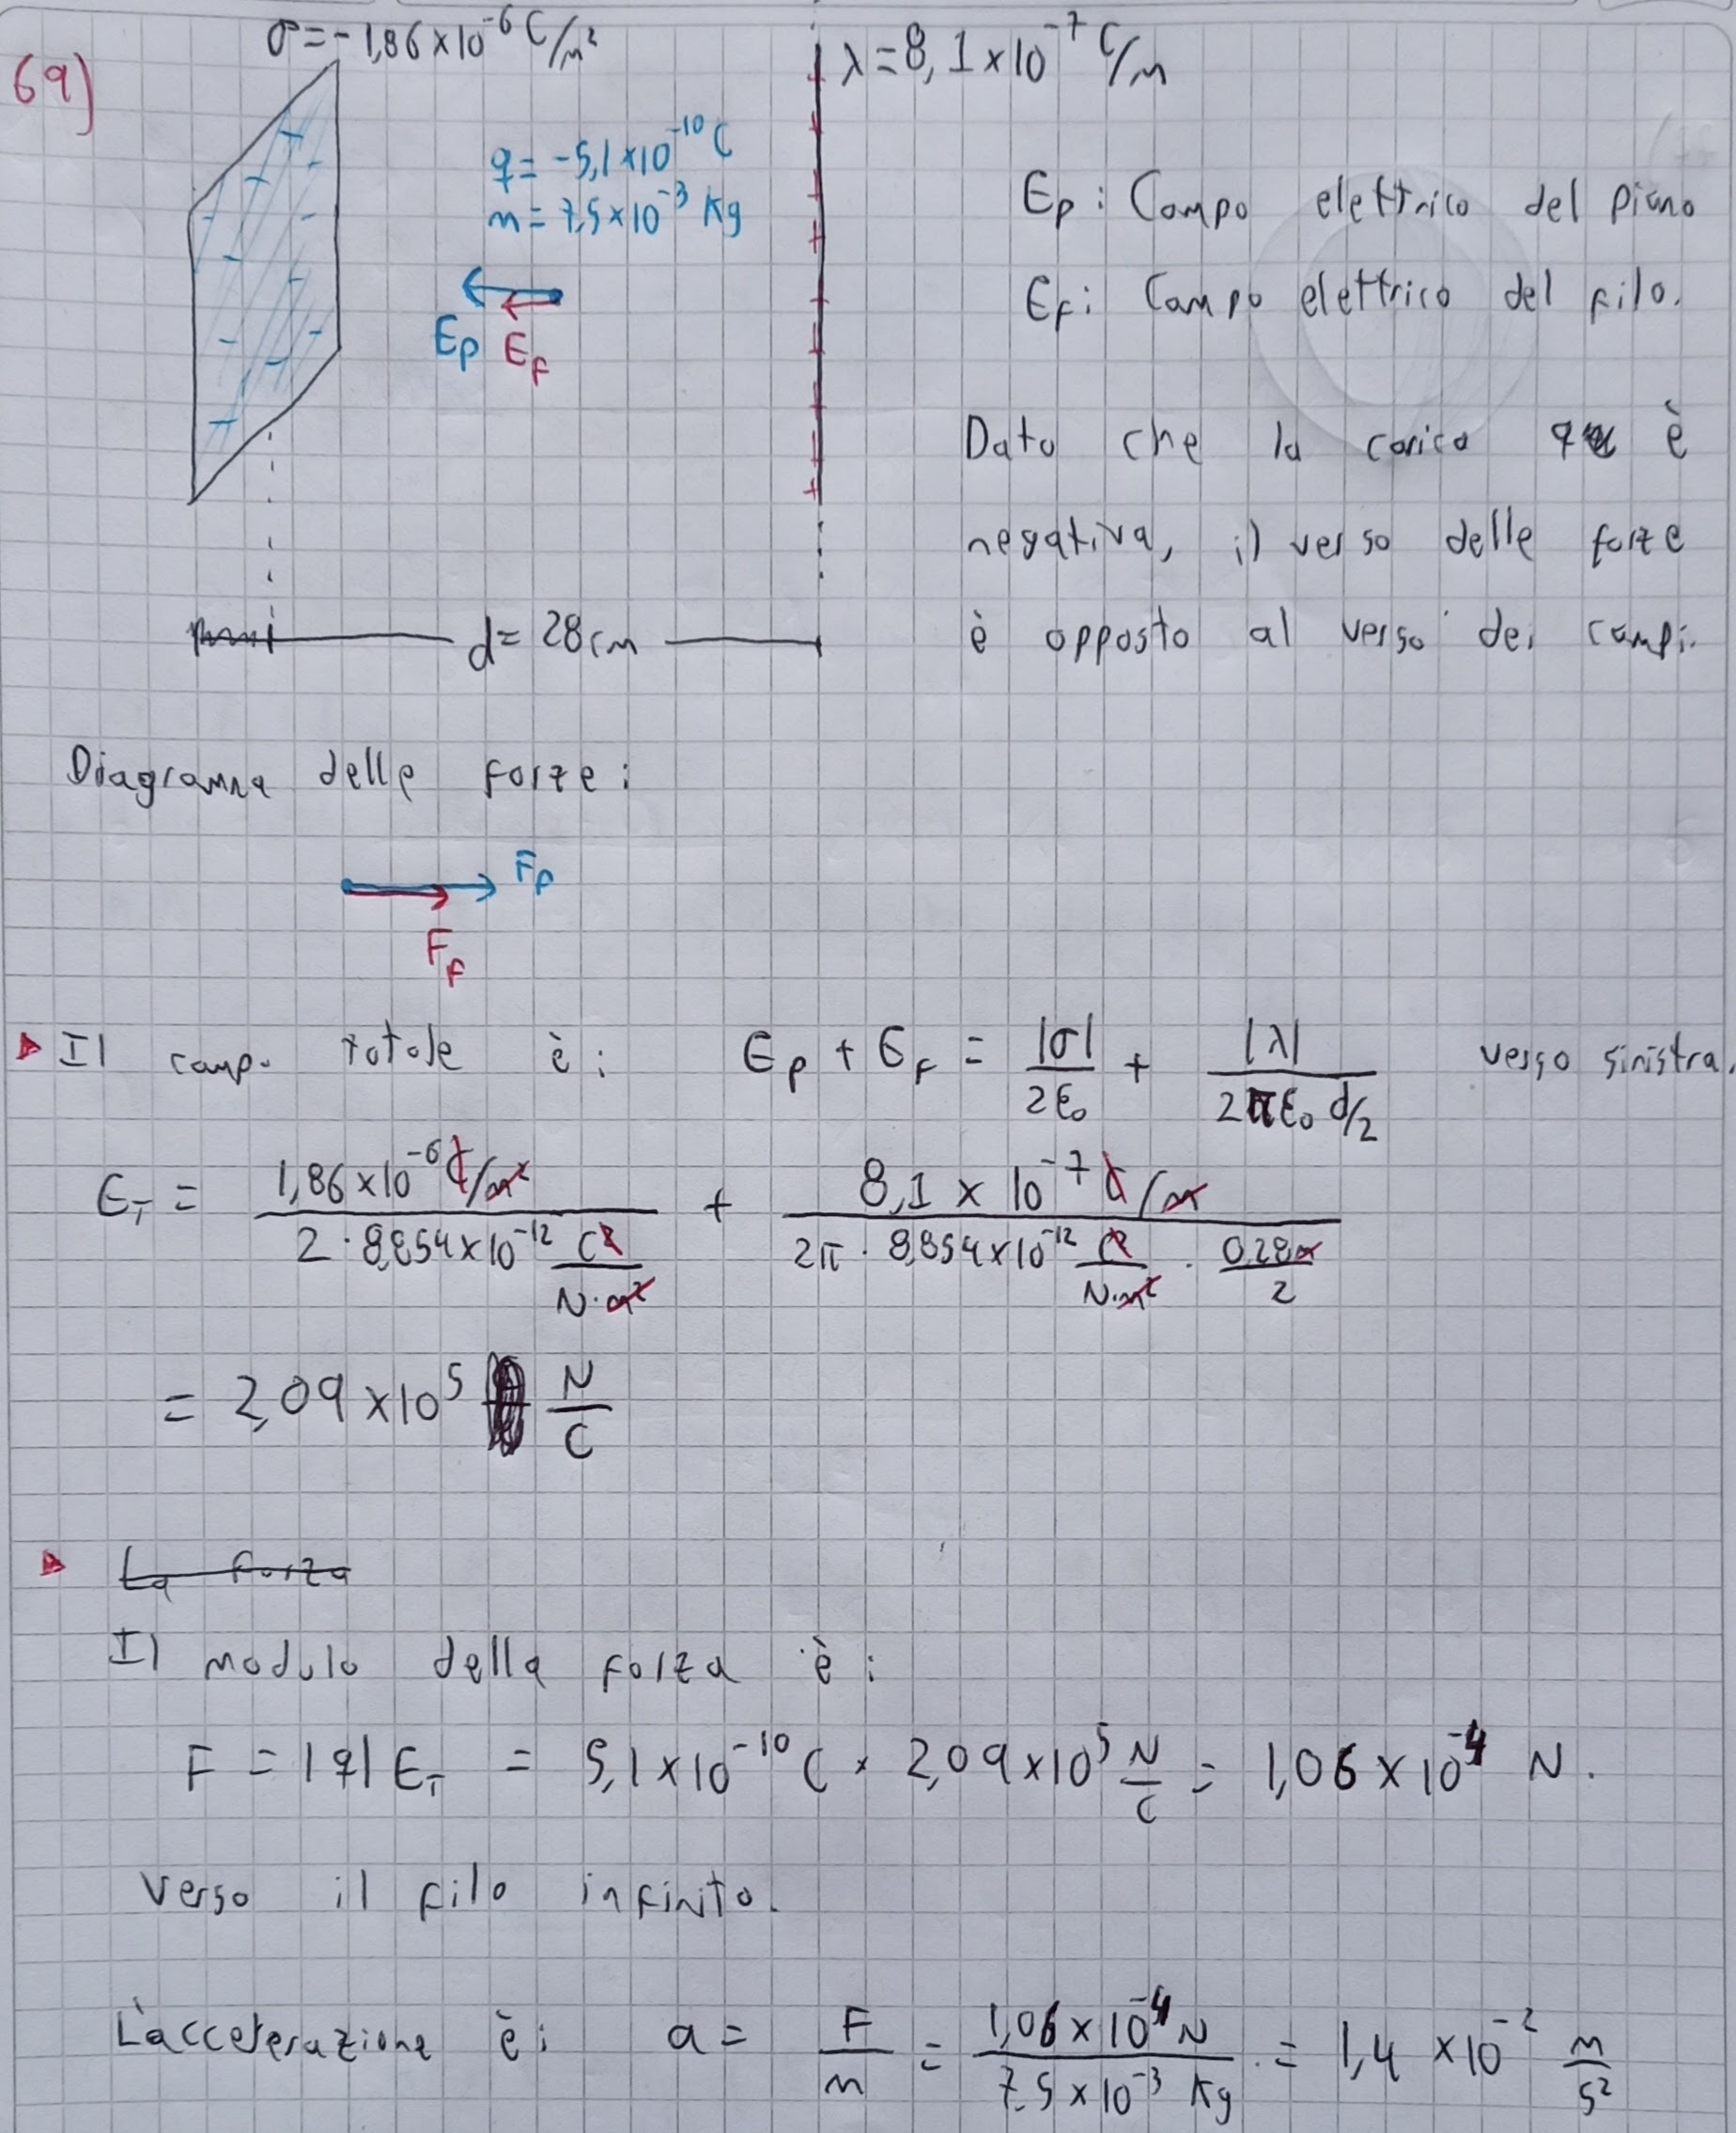 69)
σ = -1,86 × 10⁻⁶ C/m²
λ = 8,1 × 10⁻⁷ C/m
q = -5,1 × 10⁻¹⁰ C
m = 7,5 × 10⁻³ Kg
E_P E_F
E_P : Campo elettrico del piano
E_F : Campo elettrico del filo.
Dato che la carica q è
negativa, il verso delle forze
è opposto al verso dei campi.
d = 28 cm
Diagramma delle forze :
F_P
F_F
Il campo totale è : E_P + E_F = |σ| / 2ε₀ + |λ| / 2πε₀ d/2 verso sinistra.
E_T = 1,86 × 10⁻⁶ C/m² / 2 · 8,854 × 10⁻¹² C²/N·m² + 8,1 × 10⁻⁷ C/m / 2π · 8,854 × 10⁻¹² C²/N·m² · 0,28m/2
= 2,09 × 10⁵ N/C
La forza
Il modulo della forza è :
F = |q| E_T = 5,1 × 10⁻¹⁰ C × 2,09 × 10⁵ N/C = 1,06 × 10⁻⁴ N.
verso il filo infinito.
L'accelerazione è : a = F/m = 1,06 × 10⁻⁴ N / 7,5 × 10⁻³ Kg = 1,4 × 10⁻² m/s²